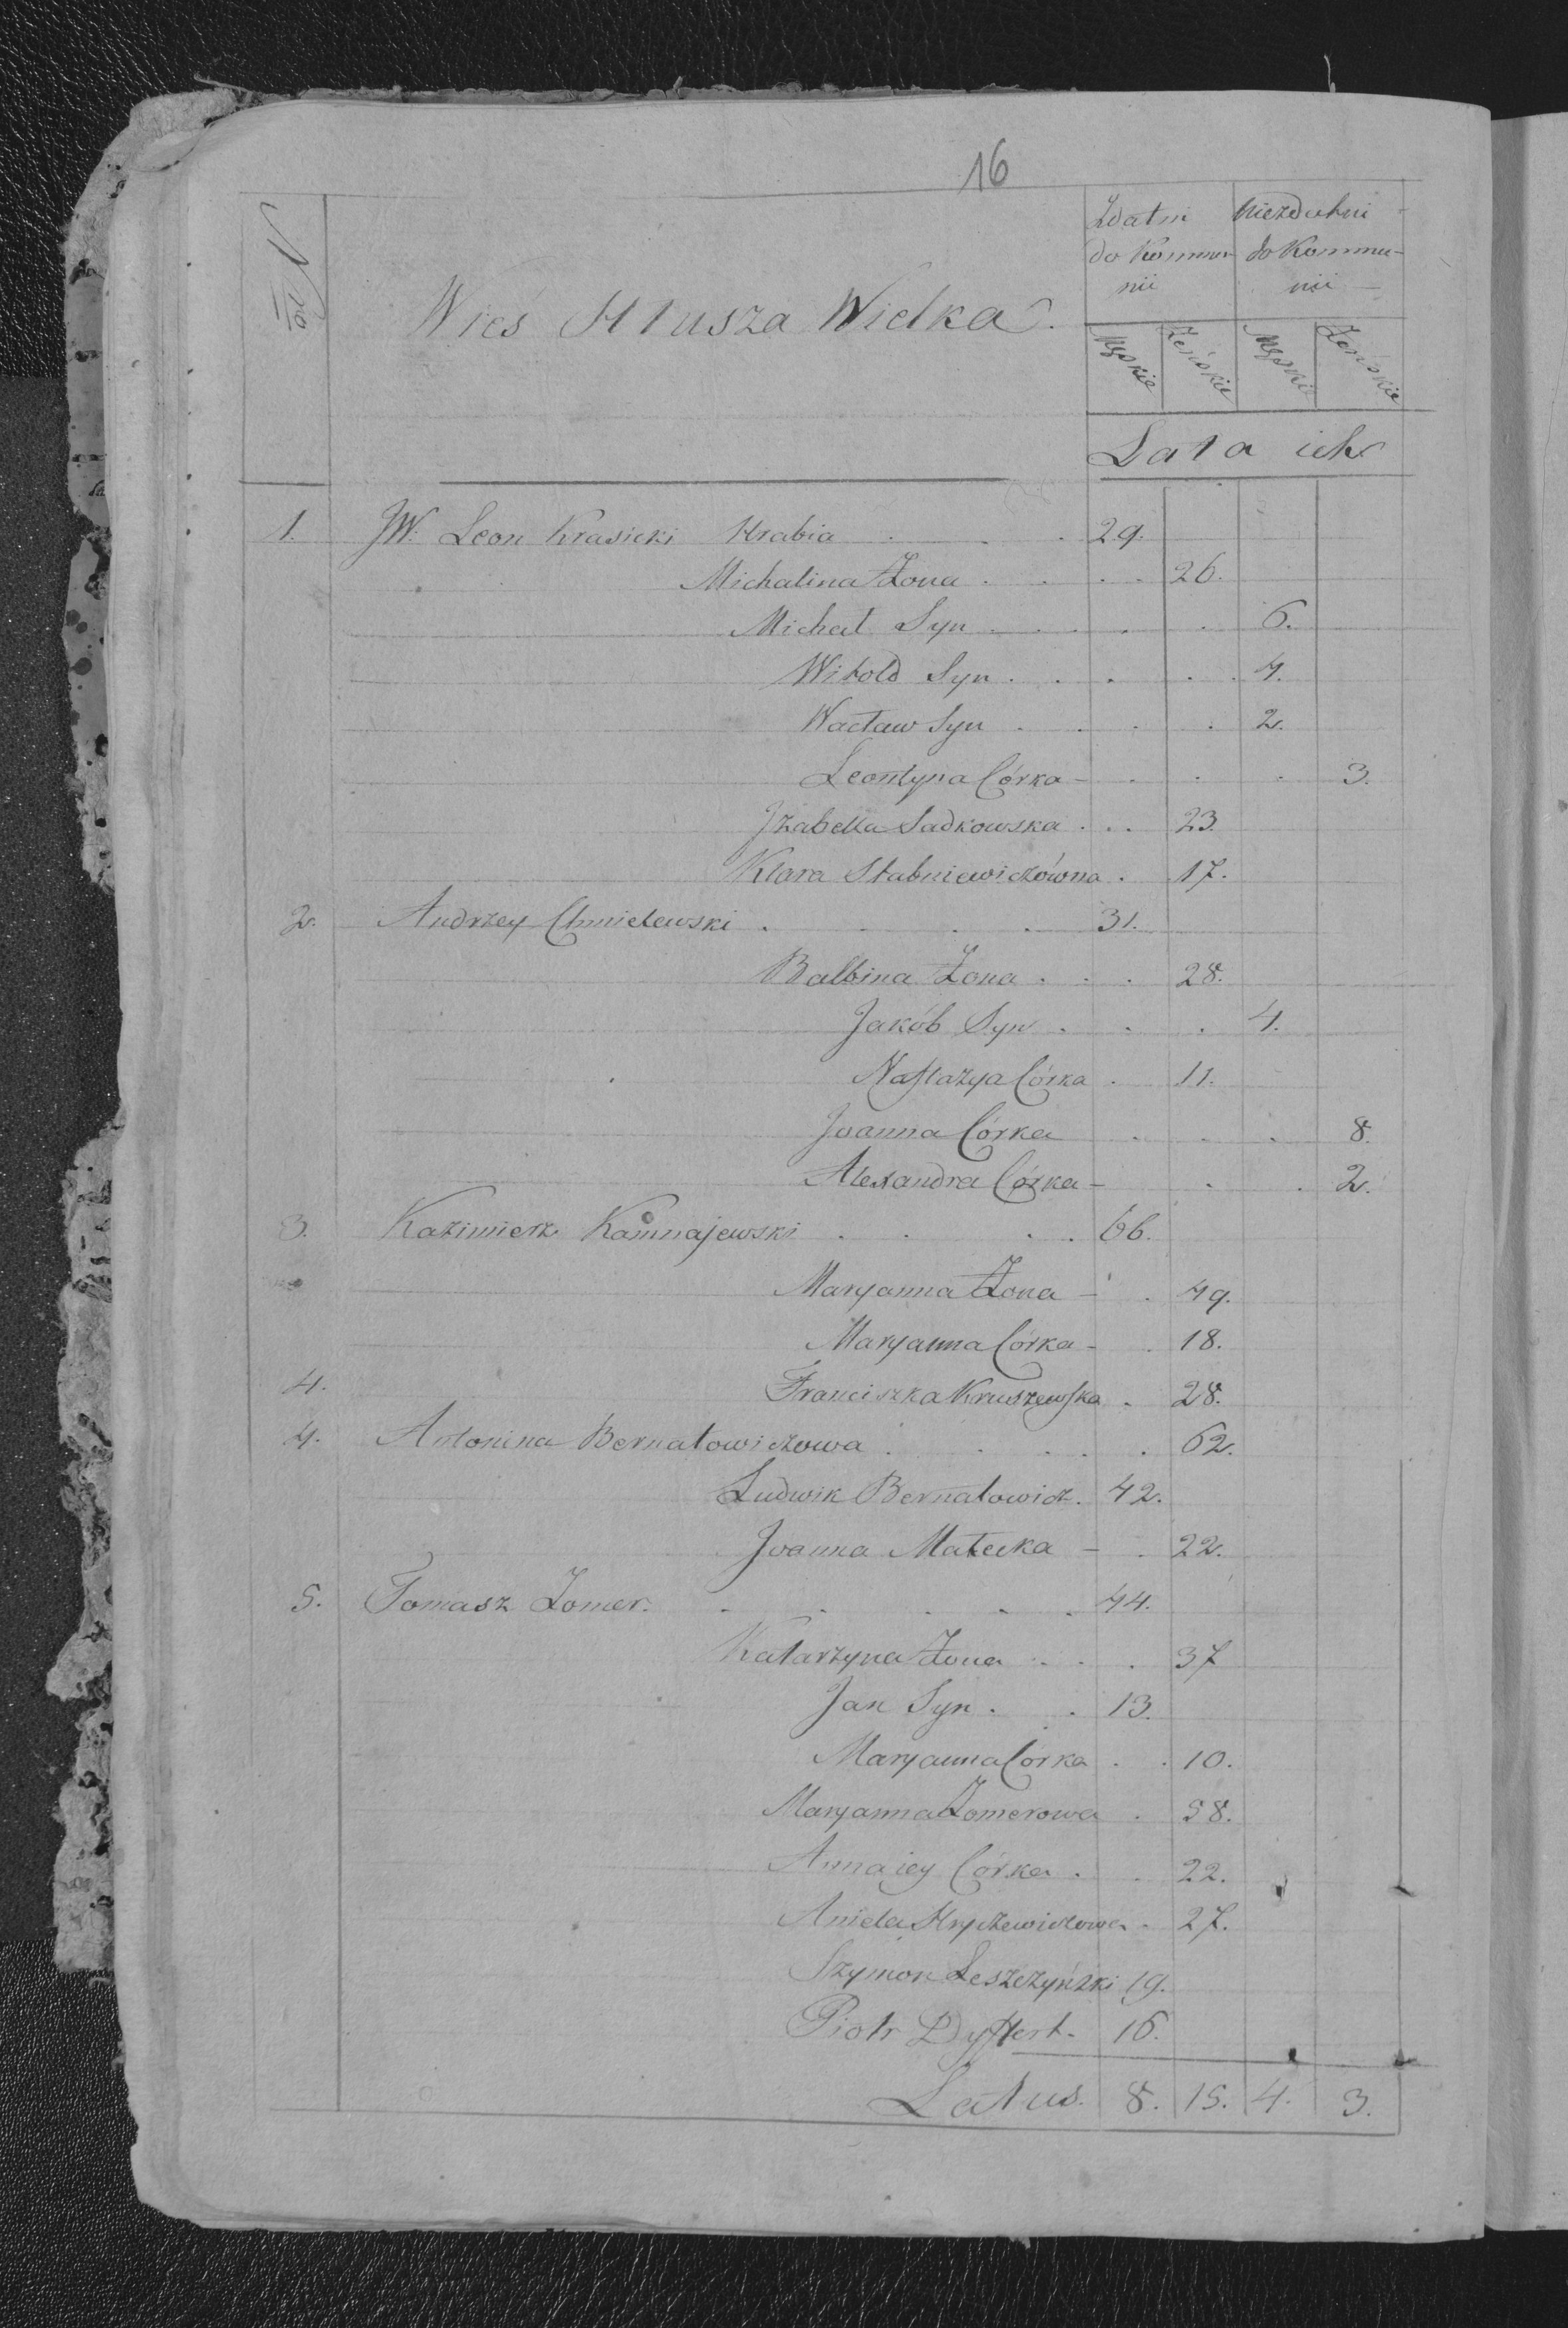 16
No
Wieś Hłusza Wielka.
Zdatni do Kommunii
Niezdatni do Kommunii
Męskie Żeńskie Męskie Żeńskie
Lata ich
1. JW. Leon Krasicki Hrabia 29.
Michalina Żona 26.
Michał Syn 6.
Witold Syn 4.
Wacław Syn 2.
Leontyna Córka 3.
Jzabella Sadkowska 23.
Klara Stabniewiczówna 17.
2. Andrzey Chmielewski 31.
Balbina Żona 28.
Jakób Syn 4.
Nastazya Córka 11.
Joanna Córka 8.
Alexandra Córka 2.
3. Kazimierz 66.
Maryanna Żona 49.
Maryanna Córka 18.
4. Franciszka Kruszewska 28.
4. Antonina Bernatowiczowa 62.
Ludwik Bernatowicz. 42.
Joanna Małecka 22.
5. Tomasz Zomer. 44.
Katarzyna Żona 37
Jan Syn 13.
Maryanna Córka 10.
Maryanna Zomerowa 58.
Anna iey Córka 22.
Aniela 27.
Szymon Leszczyński 19.
Piotr 16.
Latus. 8. 15. 4. 3.